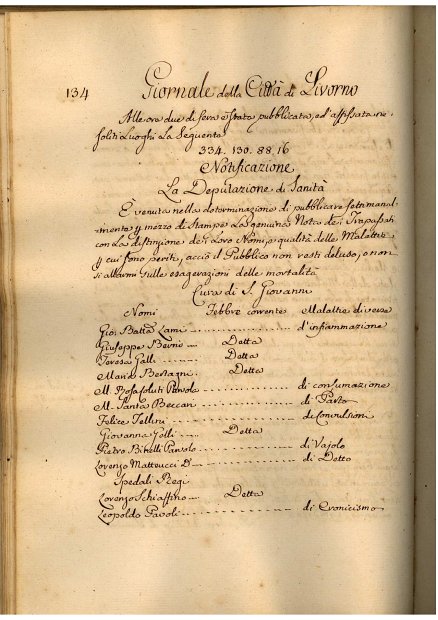 134 Giornale della Città di Livorno
Alle ore due di sera è stata pubblicata, ed affissata ne i
soliti Luoghi La Seguente
334. 130. 88. 16
Notificazione
La Deputazione di Sanità
È venuta nella determinazione di pubblicare settimanal-
mente p mezzo di Stampe La genuina Nota dei Trapassati
con La distinzione dei Loro Nomi, e qualità delle Malattie
p cui sono periti, acciò il Pubblico non resti deluso, o non
si allarmi sulle esagerazioni delle mortalità
Cura di S. Giovanni
Nomi Febbre corrente Malattie diverse
Gio: Batta Lami d'infiammazione
Giuseppe Detta
Teresa Galli Detta
Maria Detta
M. Paolo di consumazione
M. Santa Beccari di Parto
Felice Tellini di Convulsioni
Giovanna Galli Detta
Pietro Birelli Paolo di Vajolo
Lorenzo Matteucci D di Detto
Spedali Regi
Lorenzo Schiaffino Detta
Leopoldo Paoli di Cronicismo